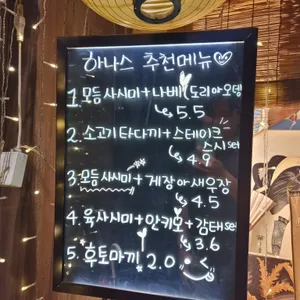 하나스 추천메뉴
1. 모듬 사시미+나베(도리 아오뎅)
5.5
2. 소고기 타다끼+스테이크
스시 set
4.9
3. 모듬 사시미+게장 아새우장
4.5
4. 육사시미+안키모+감태 set
3.6
5. 후토마끼 2.0